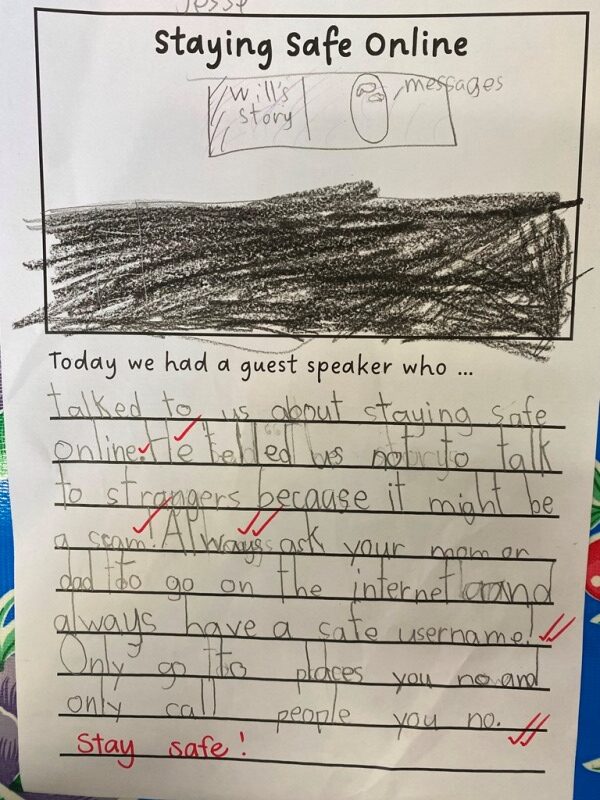 Jesse
Staying Safe Online
Will's
story
messages
Today we had a guest speaker who ...
talked to us about staying safe
online. He telled us not to talk
to strangers because it might be
a scam! Always ask your mom or
dad to go on the internet and
always have a safe username!
Only go to places you no and
only call people you no.
Stay safe!